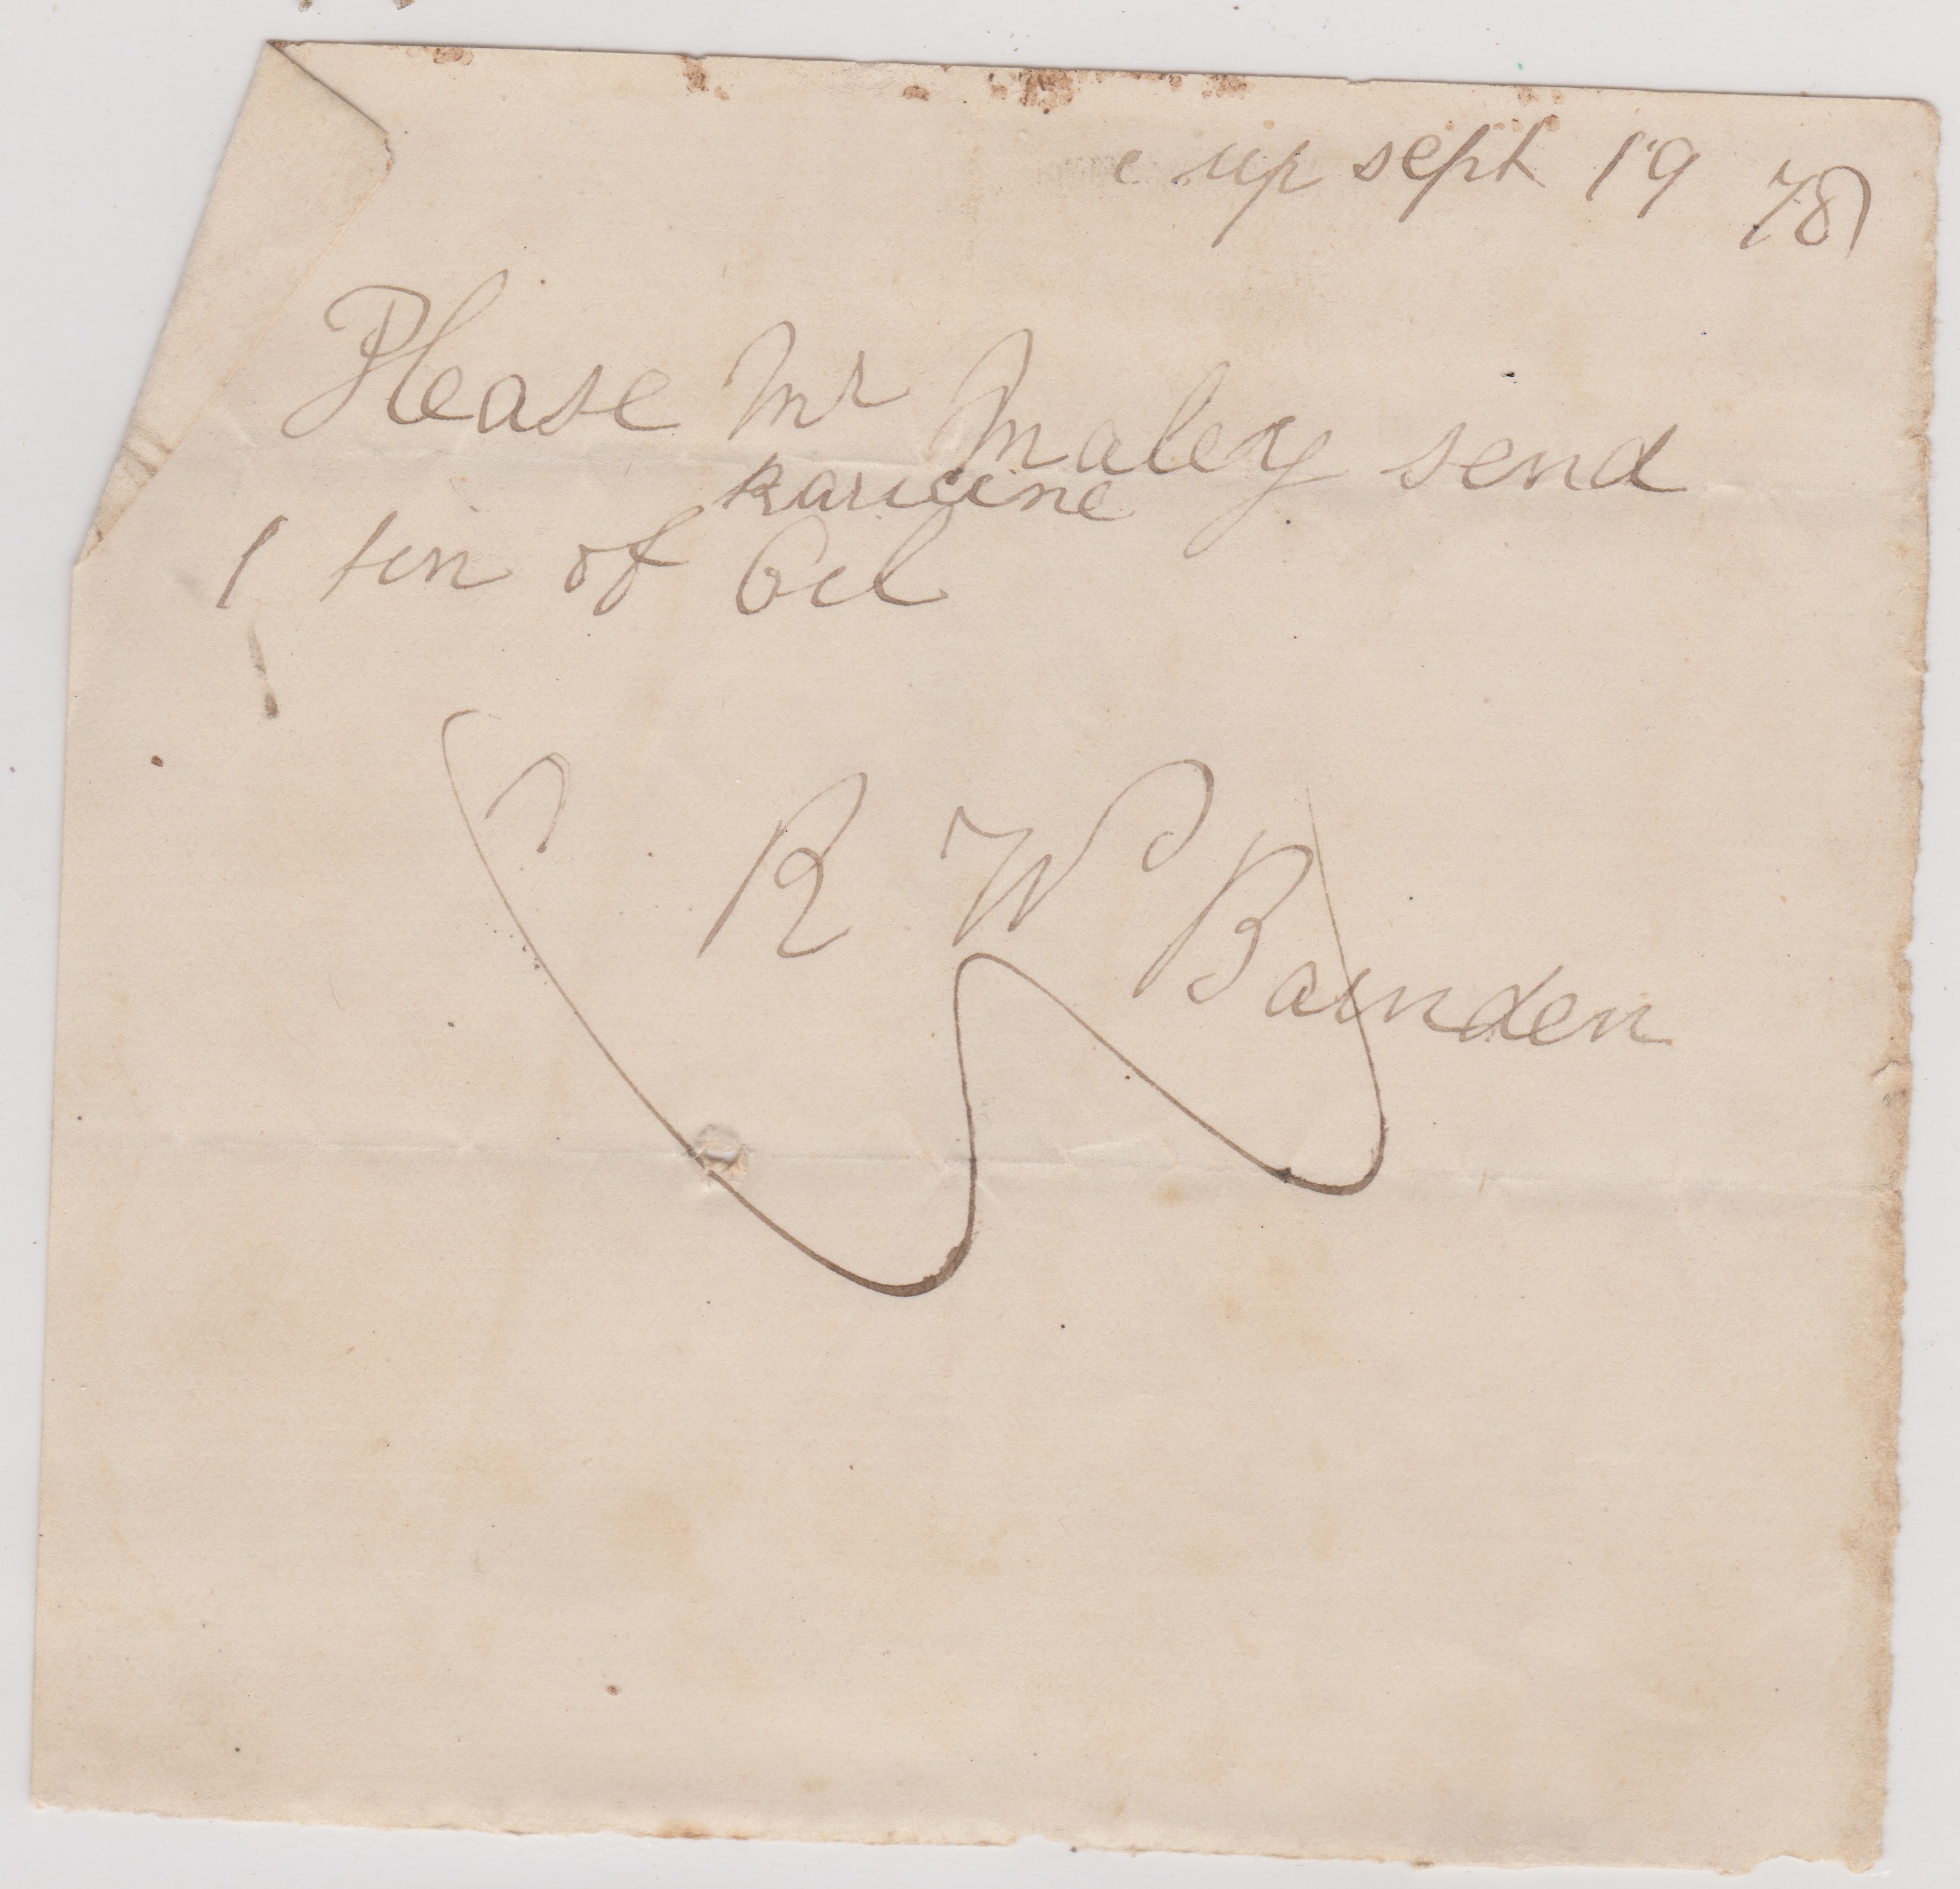 up sept 19 78
Please Mr Maley send
Karicine
1 tin of Oil
R W Bainden